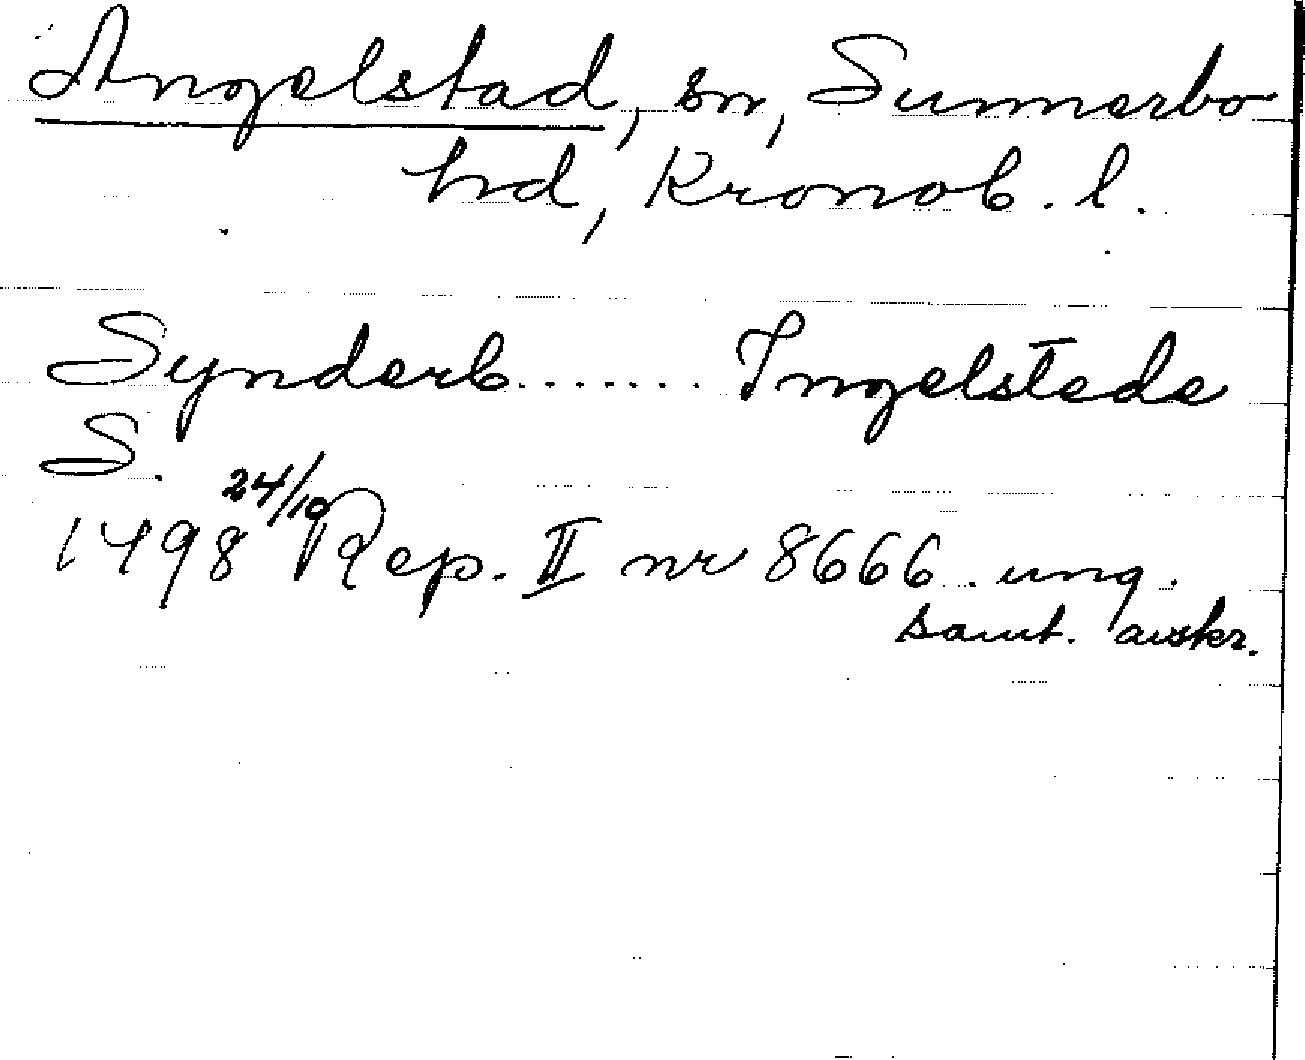 Angelstad, sn, Sunnerbo
hd, Kronob. l.
Synderb....... Ingelstede
S.
1498 24/10 Rep. II nr 8666. ung.
samt. avskr.